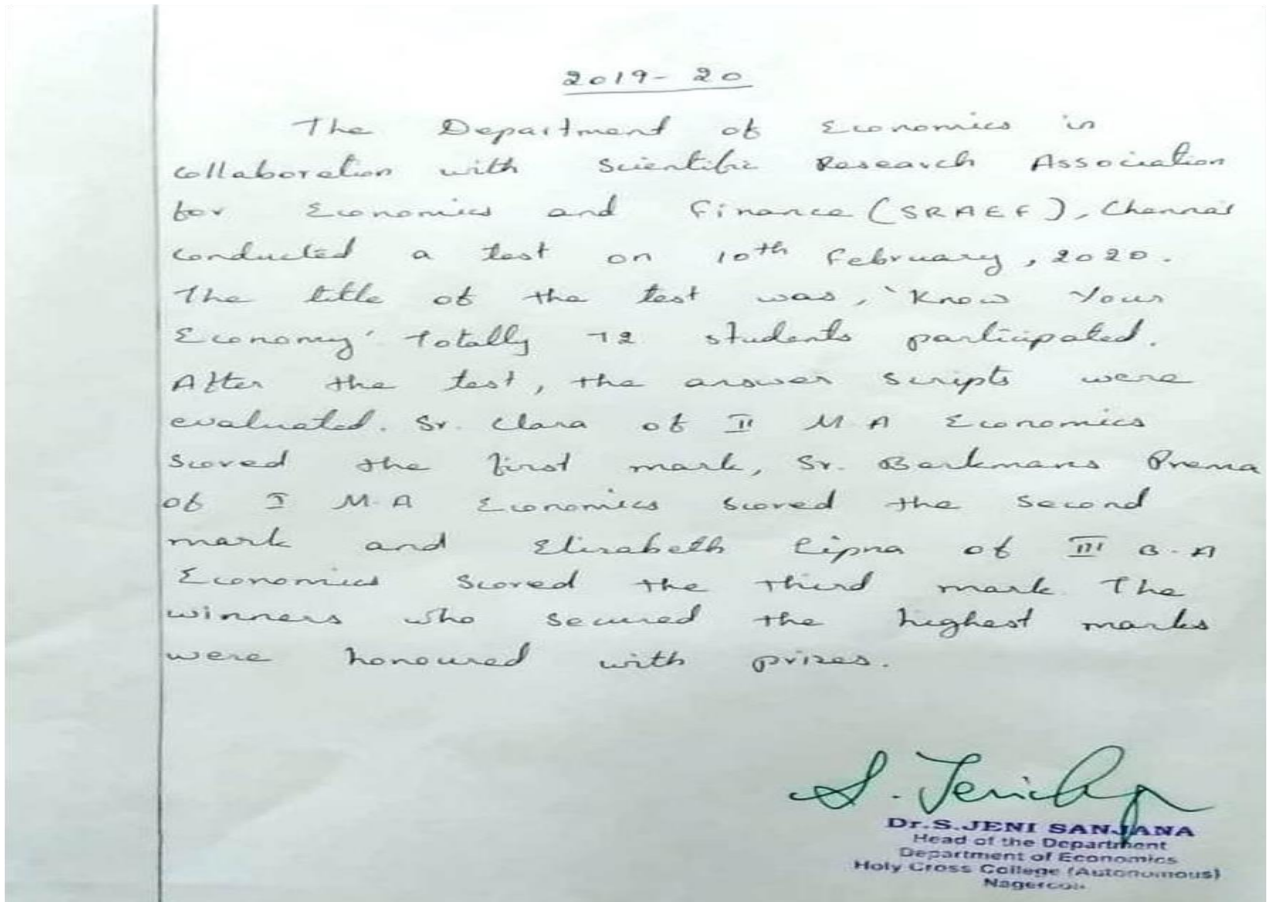 2019-20
The Department of Economics in
collaboration with Scientific Research Association
for Economics and Finance (SRAEF), Chennai
conducted a test on 10th February, 2020.
The title of the test was, 'Know Your
Economy' Totally 72 students participated.
After the test, the answer scripts were
evaluated. Sr. Clara of II M.A Economics
scored the first mark, Sr. Berkmans Prema
of I M.A Economics scored the second
mark and Elisabeth of III B.A
Economics scored the third mark. The
winners who secured the highest marks
were honoured with prizes.
S. Jeni
Dr.S.JENI SANJANA
Head of the Department
Department of Economics
Holy Cross College (Autonomous)
Nagercoil